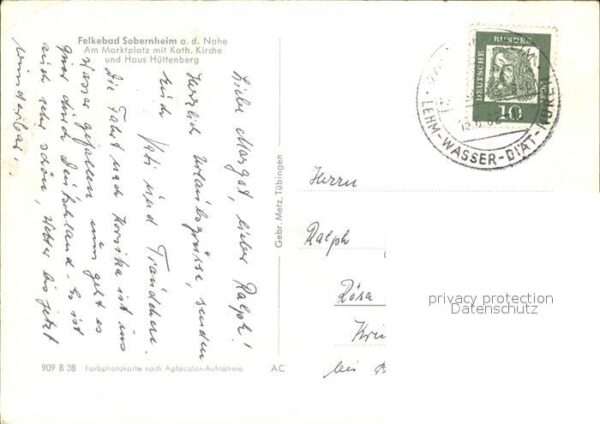 Felkebad Sobernheim a. d. Nahe
Am Marktplatz mit Kath. Kirche
und Haus Hüttenberg
Liebe Margot, lieber Ralph!
Herzlich Urlaubsgrüsse, senden
Euch Vati und Traudchen.
Die Fahrt nach Korsika ist ins
Wasser gefallen nun geht es
quer durch Deutschland - Es ist
auch sehr schön, Wetter bis jetzt
wunderbar!
909 B 38 Farbphotokarte nach Agfacolor-Aufnahme AC
Gebr. Metz, Tübingen
DEUTSCHE BUNDESPOST
10
LEHM-WASSER-DIÄT-KUREN
Herrn
Ralph
Rösa
Krei
bei
privacy protection
Datenschutz